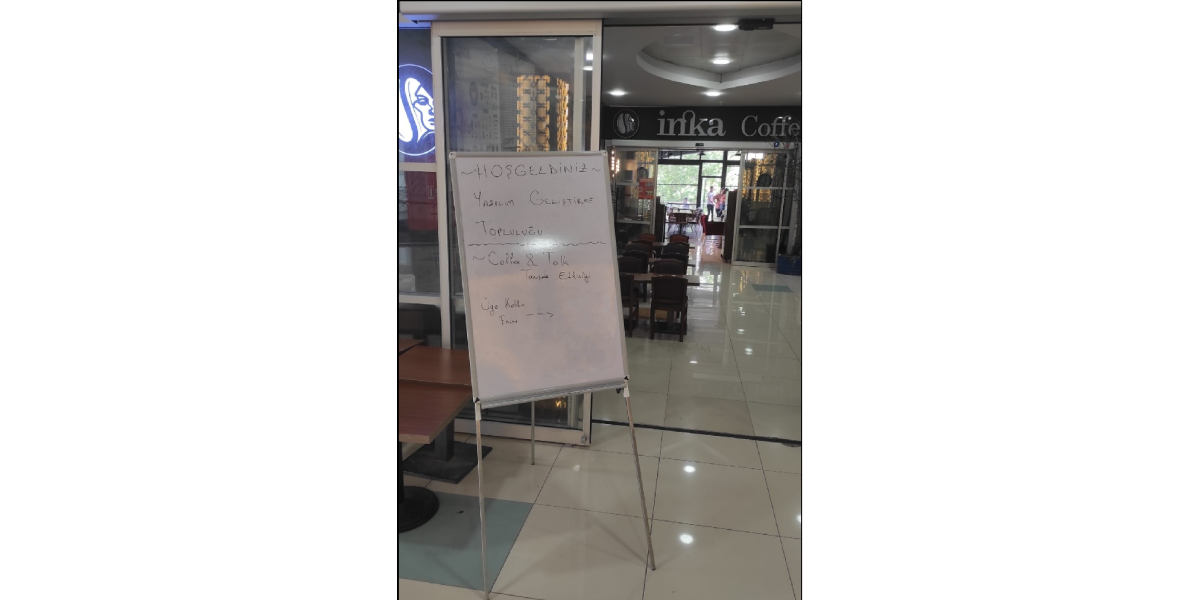 inka Coffe
~HOŞGELDİNİZ~
YAZILIM GELİŞTİRME
TOPLULUĞU
~Coffee & Talk
Tanışma Etkinliği
Üye Katılım
Formu